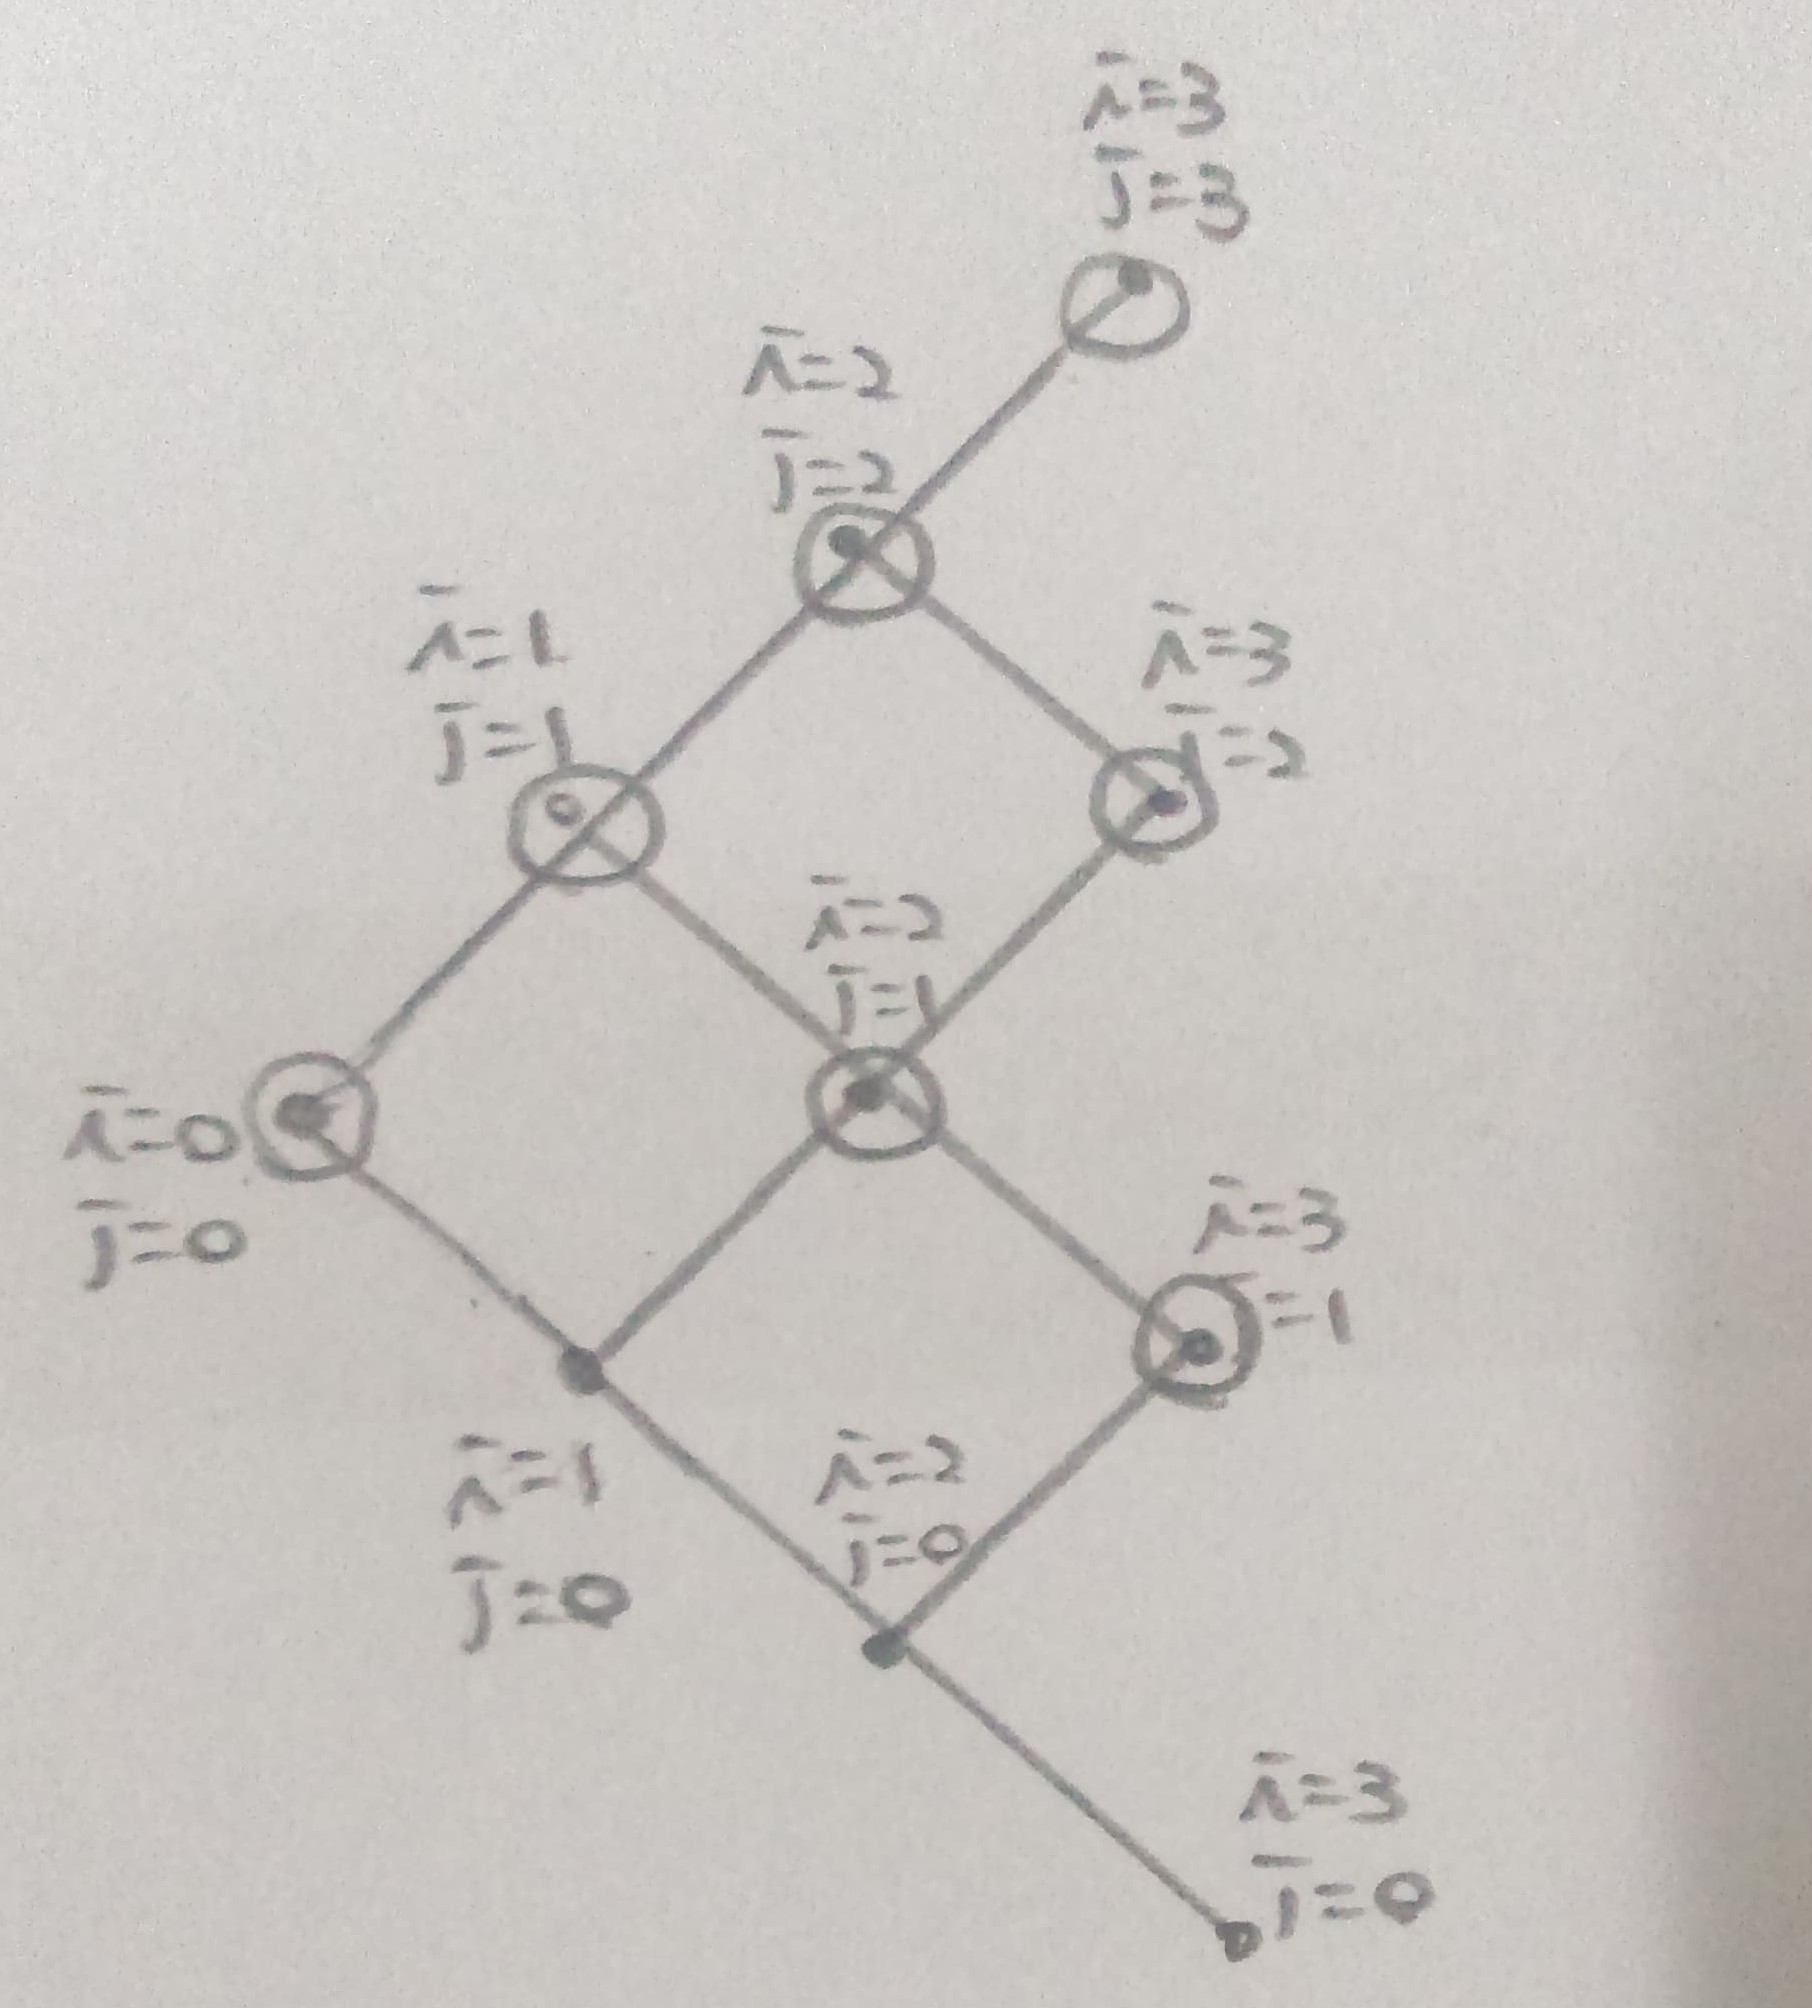 i=3
j=3
i=2
j=2
i=1
j=1
i=3
j=2
i=2
j=1
i=0
j=0
i=3
j=1
i=1
j=0
i=2
j=0
i=3
j=0